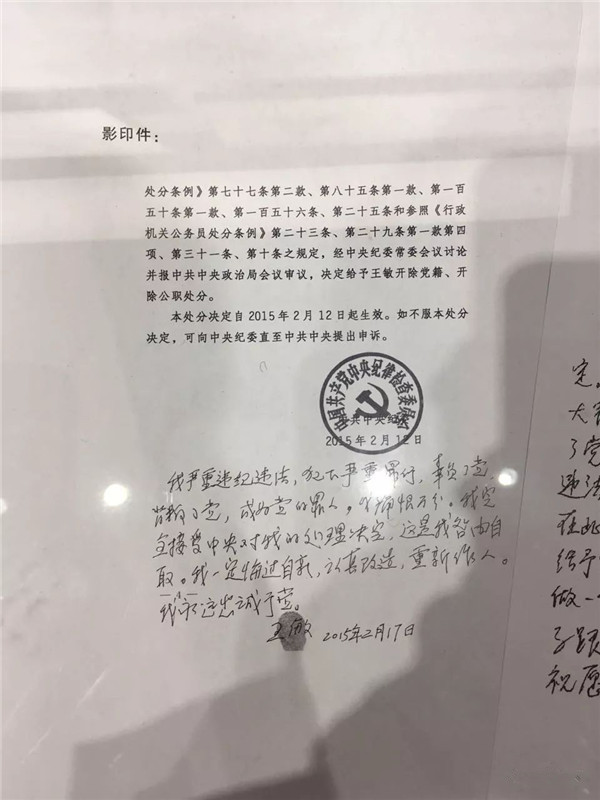 影印件：
处分条例》第七十七条第二款、第八十五条第一款、第一百
五十条第一款、第一百五十六条、第二十五条和参照《行政
机关公务员处分条例》第二十三条、第二十九条第一款第四
项、第三十一条、第十条之规定，经中央纪委常委会议讨论
并报中共中央政治局会议审议，决定给予王敏开除党籍、开
除公职处分。
本处分决定自2015年2月12日起生效。如不服本处分
决定，可向中央纪委直至中共中央提出申诉。
中国共产党中央纪律检查委员会
中共中央纪
2015年2月12日
我严重违纪违法，犯下严重罪行，辜负了党，
背叛了党，成为党的罪人。我痛恨万分。我完
全接受中央对我的处理决定，这是我咎由自
取。我一定悔过自新，认真改造，重新作人。
我永远忠诚于党。
王敏 2015年2月17日
定。
了党
违法
在此
给予
做一
祝愿